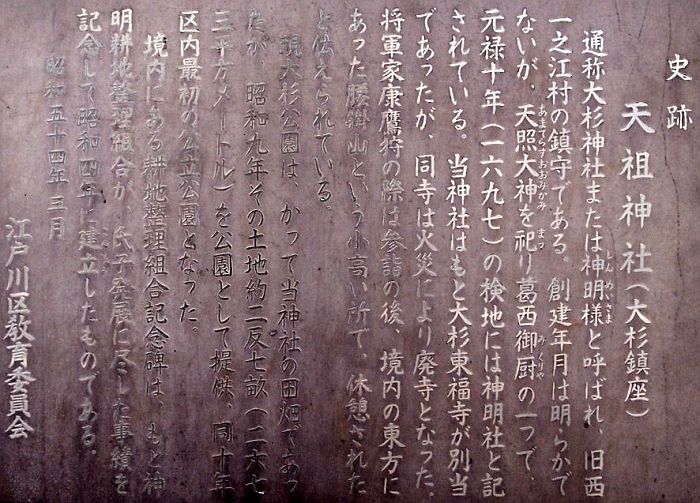 史跡
天祖神社（大杉鎮座）
通称大杉神社または神明様と呼ばれ、旧西
しんめいさま
一之江村の鎮守である。創建年月は明らかで
ないが、天照大神を祀り葛西御厨の一つで、
あまてらすおおみかみ　まつ　みくりや
元禄十年（一六九七）の検地には神明社と記
されている。当神社はもと大杉東福寺が別当
であったが、同寺は火災により廃寺となった。
将軍家康鷹狩の際は参詣の後、境内の東方に
あった腰掛山という小高い所で、休憩された
と伝えられている。
現大杉公園は、かつて当神社の田畑であっ
たが、昭和九年その土地約二反七畝（二六七
三平方メートル）を公園として提供、同十年
区内最初の公立公園となった。
境内にある耕地整理組合記念碑は、もと神
明耕地整理組合が、氏子発展に尽した事績を
記念して昭和四年に建立したものである。
昭和五十四年三月
江戸川区教育委員会